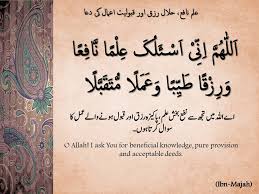 علم نافع، حلال رزق اور قبولیت اعمال کی دعا
اَللّٰھُمَّ اِنِّیْ اَسْئَلُکَ عِلْمًا نَّافِعًا
وَرِزْقًا طَیِّبًا وَعَمَلًا مُّتَقَبَّلًا
اے اللہ میں تجھ سے نفع بخش علم، پاکیزہ رزق اور قبول ہونے والے عمل کا
سوال کرتا ہوں۔
O Allah! I ask You for beneficial knowledge, pure provision
and acceptable deeds.
(Ibn-Majah)